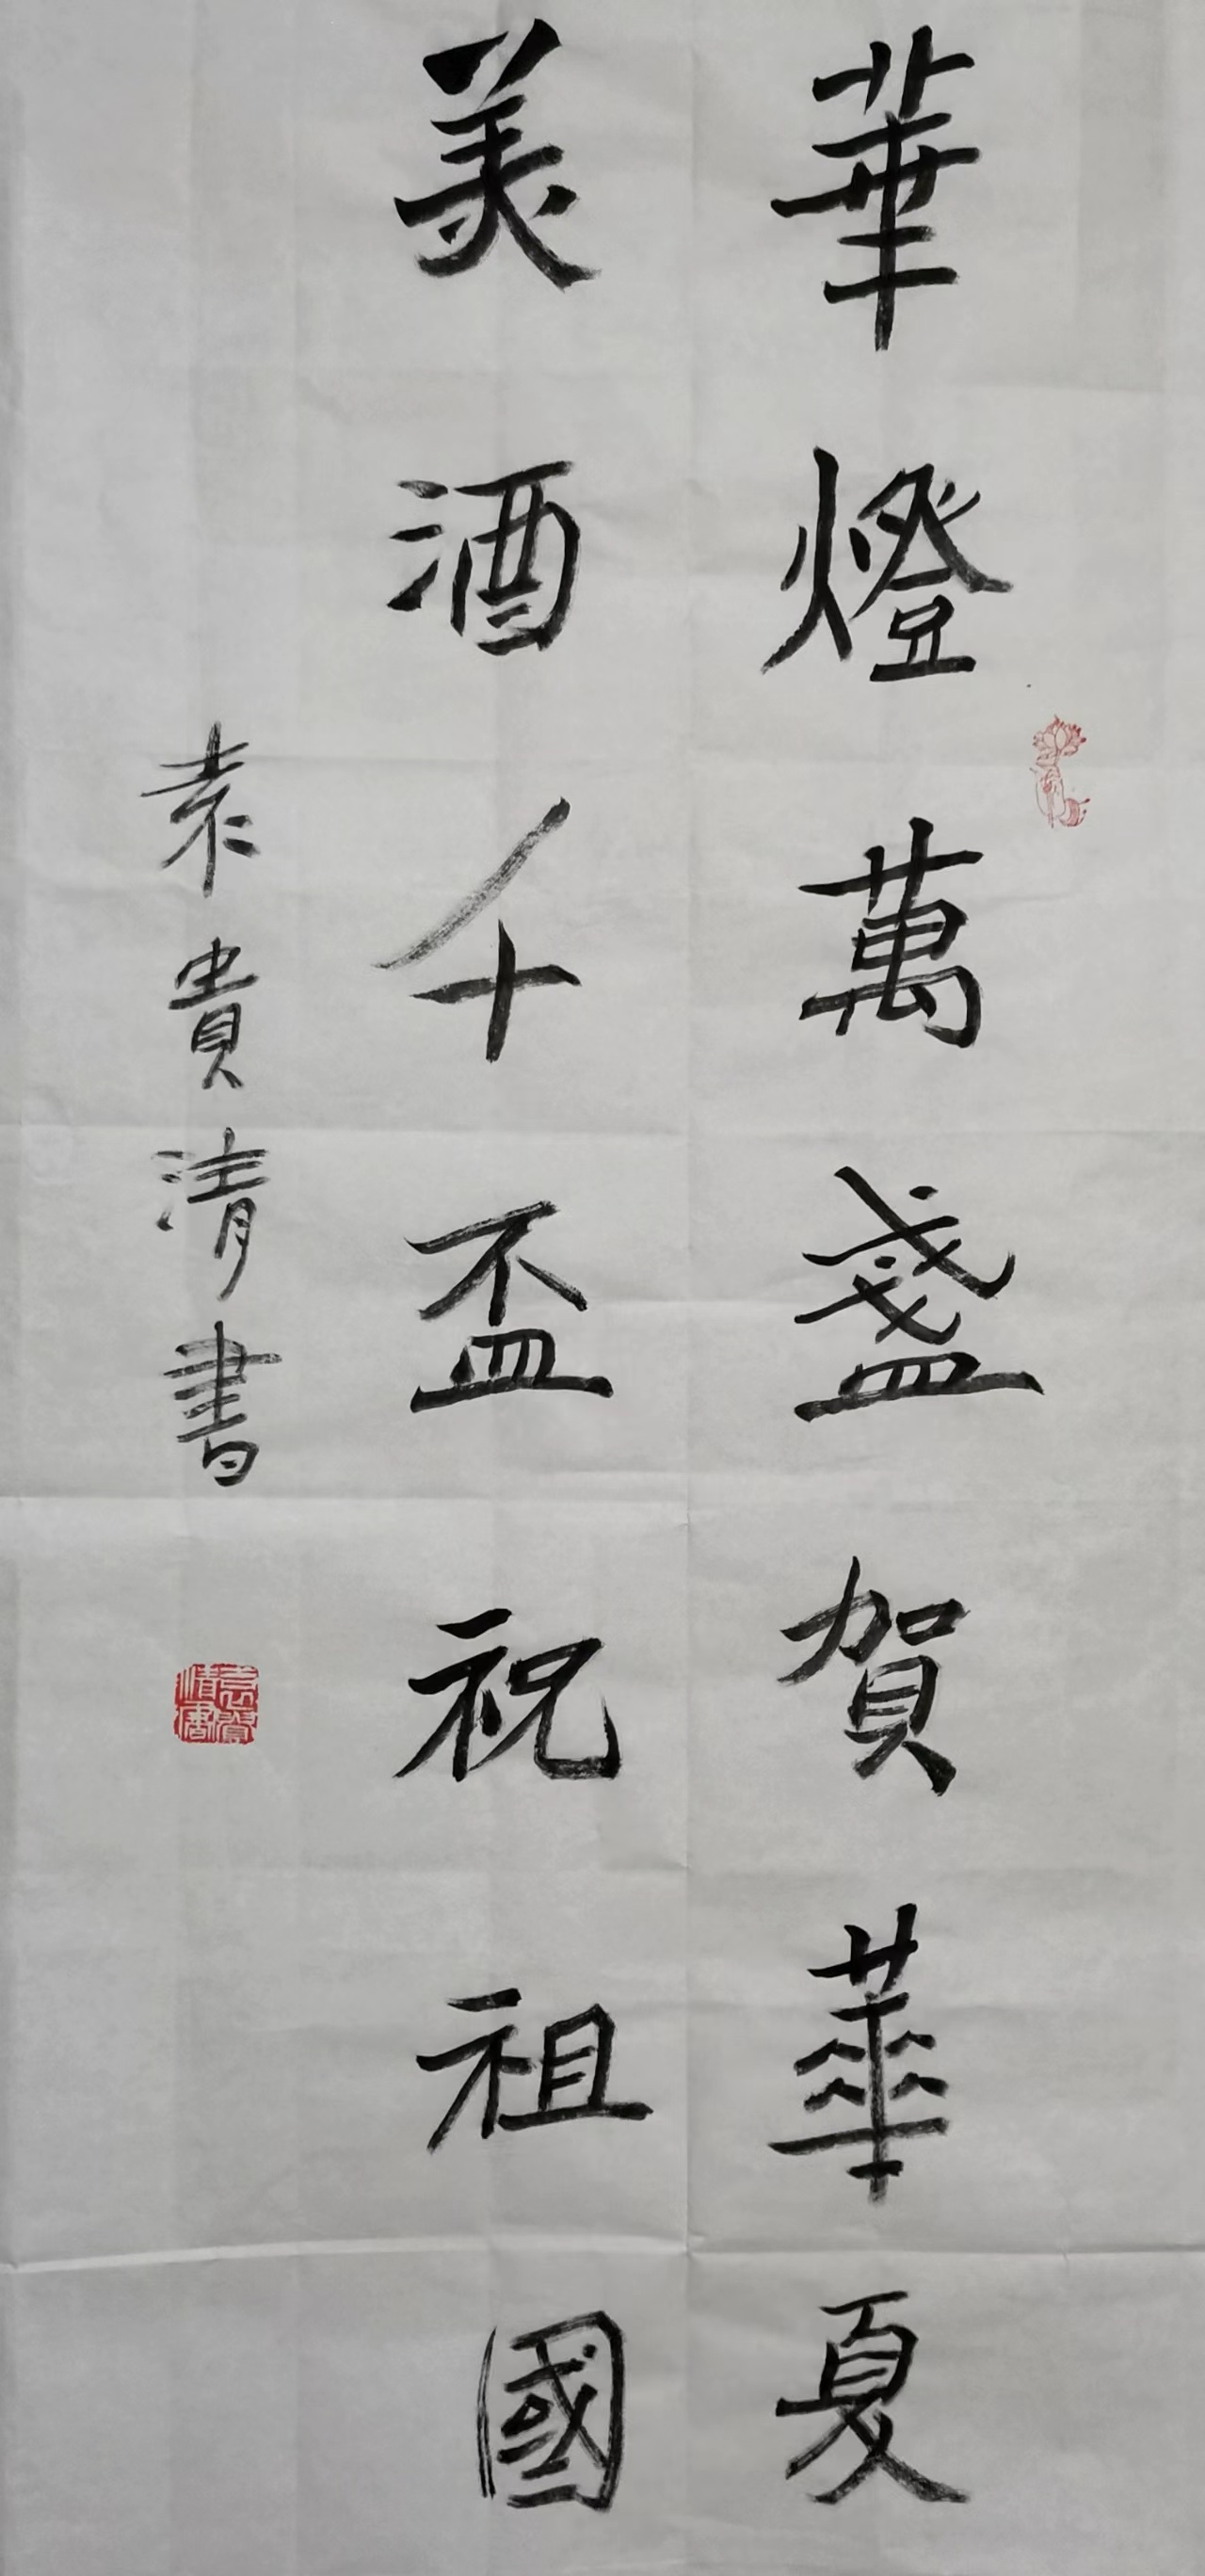 華燈萬盞賀華夏
美酒千盃祝祖國
袁貴清書